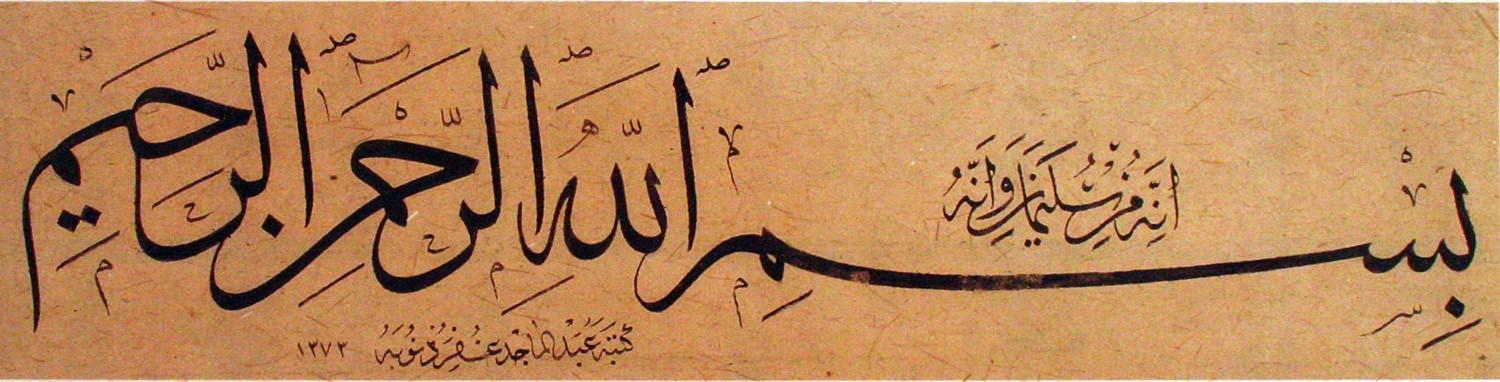 اِنَّهُ مِنْ سُلَيْمَانَ وَاِنَّهُ
بِسْمِ اللّٰهِ الرَّحْمٰنِ الرَّحِيمِ
كتبه عبد الماجد غفر ذنوبه ١٣٧٣